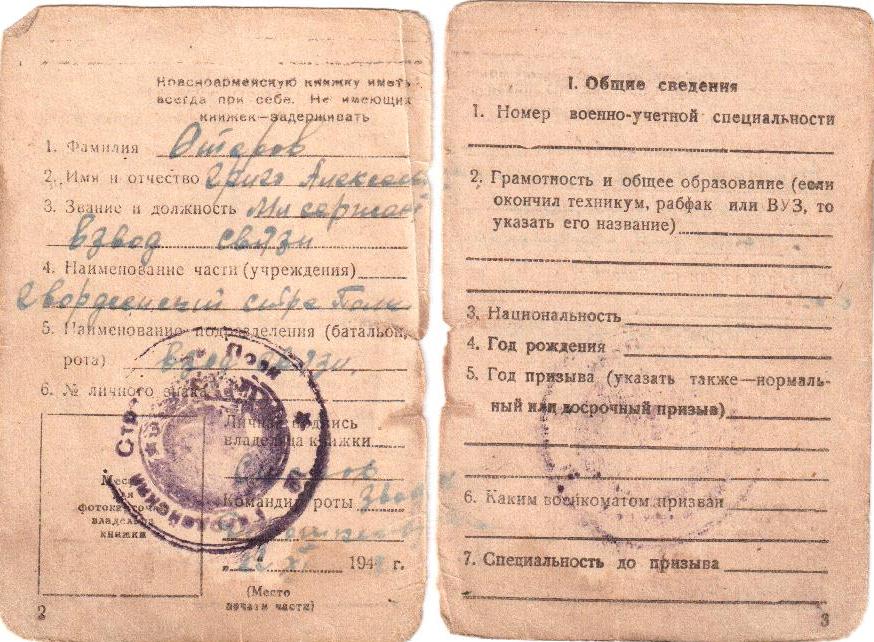 Красноармейскую книжку иметь
всегда при себе. Не имеющих
книжек—задерживать
1. Фамилия Отаров
2. Имя и отчество
3. Звание и должность
взвод связи
4. Наименование части (учреждения)
5. Наименование подразделения (батальон,
рота) взвод связи.
6. № личного знака
Личная подпись
владельца книжки
Место
для
фотокарточки
владельца
книжки
Командир роты
22 XI 194 г.
(Место
печати части)
2
I. Общие сведения
1. Номер военно-учетной специальности
2. Грамотность и общее образование (если
окончил техникум, рабфак или ВУЗ, то
указать его название)
3. Национальность
4. Год рождения
5. Год призыва (указать также—нормаль-
ный или досрочный призыв)
6. Каким военкоматом призван
7. Специальность до призыва
3